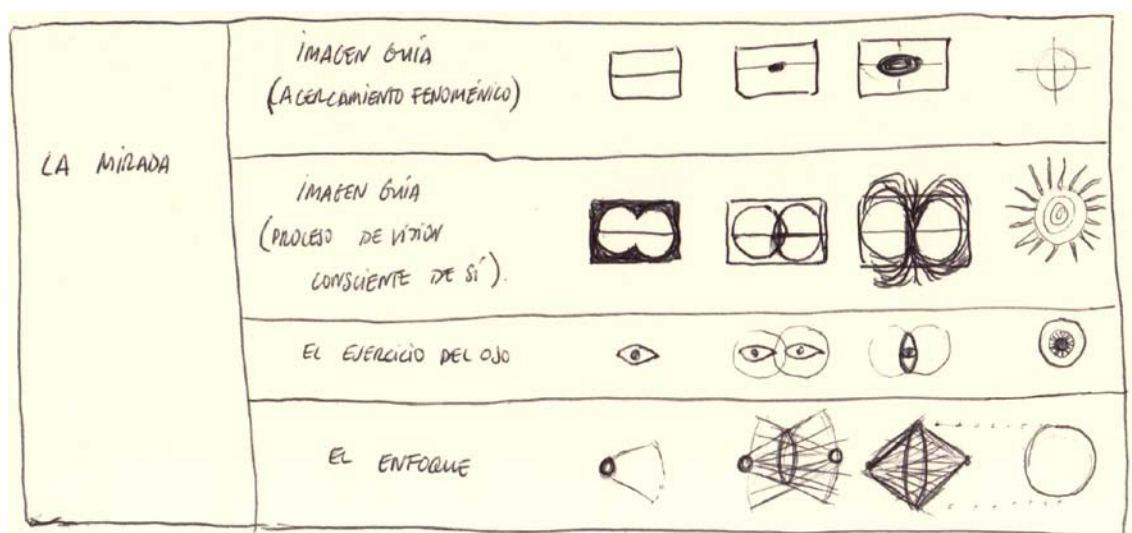 LA MIRADA
IMAGEN GUÍA
(ACERCAMIENTO FENOMÉNICO)
IMAGEN GUÍA
(PROCESO DE VISIÓN
CONSCIENTE DE SÍ).
EL EJERCICIO DEL OJO
EL ENFOQUE